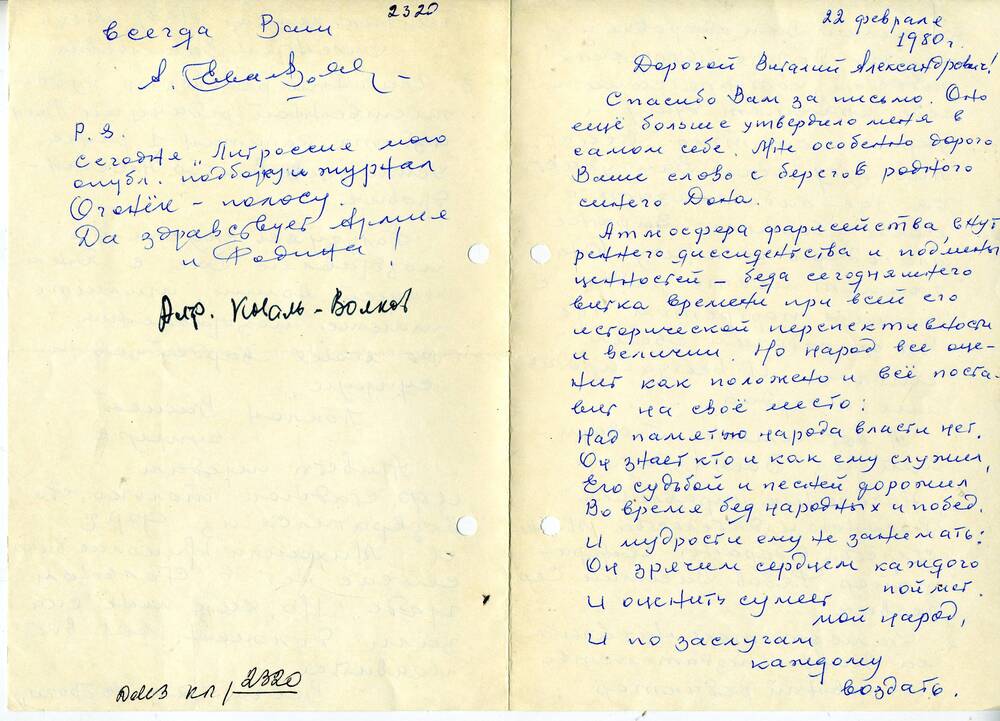 2320
всегда Ваш
А.
P. S.
Сегодня „Литроссия" мою
опубл. подборку и журнал
Огонёк - полосу.
Да здравствует Армия
и Родина!
Алр. Коваль-Волков
ДМЗ КП / 2320
22 февраля
1980 г.
Дорогой Виталий Александрович!
Спасибо Вам за письмо. Оно
ещё больше утвердило меня в
самом себе. Мне особенно дорого
Ваше слово с берегов родного
синего Дона.
Атмосфера фарисейства, внут
реннего диссидентства и подмены
ценностей - беда сегодняшнего
витка времени при всей его
исторической перспективности
и величии. Но народ все оце-
нит как положено и всё поста-
вит на своё место:
Над памятью народа власти нет.
Он знает кто и как ему служил,
Его судьбой и песней дорожил
Во время бед народных и побед.
И мудрости ему не занимать:
Он зрячим сердцем каждого
поймет.
И оценить сумеет
мой народ,
И по заслугам
каждому
воздать.